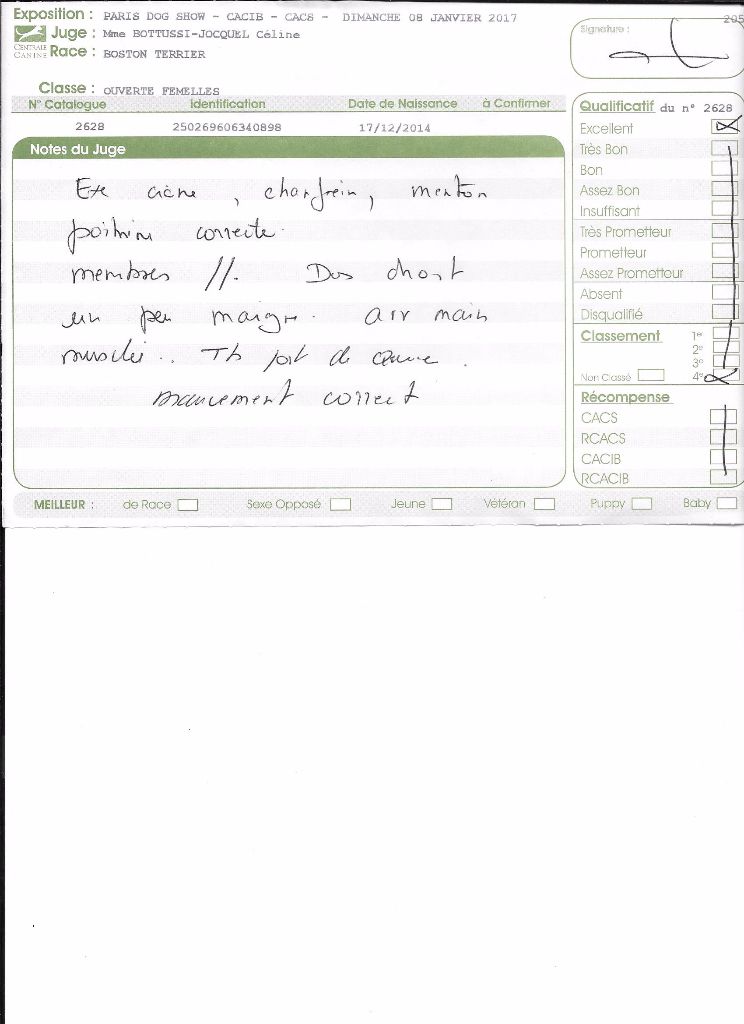 Exposition : PARIS DOG SHOW - CACIB - CACS - DIMANCHE 08 JANVIER 2017
205
Juge : Mme BOTTUSSI-JOCQUEL Céline
Signature :
CENTRALE CANINE
Race : BOSTON TERRIER
Classe : OUVERTE FEMELLES
N° Catalogue Identification Date de Naissance à Confirmer
2628 250269606340898 17/12/2014
Notes du Juge
crâne, chanfrein, menton
poitrine correcte.
membres //. Dos droit
un peu maigre. arr main
musclée. TB port de
mouvement correct
Qualificatif du n° 2628
Excellent
Très Bon
Bon
Assez Bon
Insuffisant
Très Prometteur
Prometteur
Assez Prometteur
Absent
Disqualifié
Classement 1er
2e
3e
Non Classé 4e
Récompense
CACS
RCACS
CACIB
RCACIB
MEILLEUR : de Race Sexe Opposé Jeune Vétéran Puppy Baby